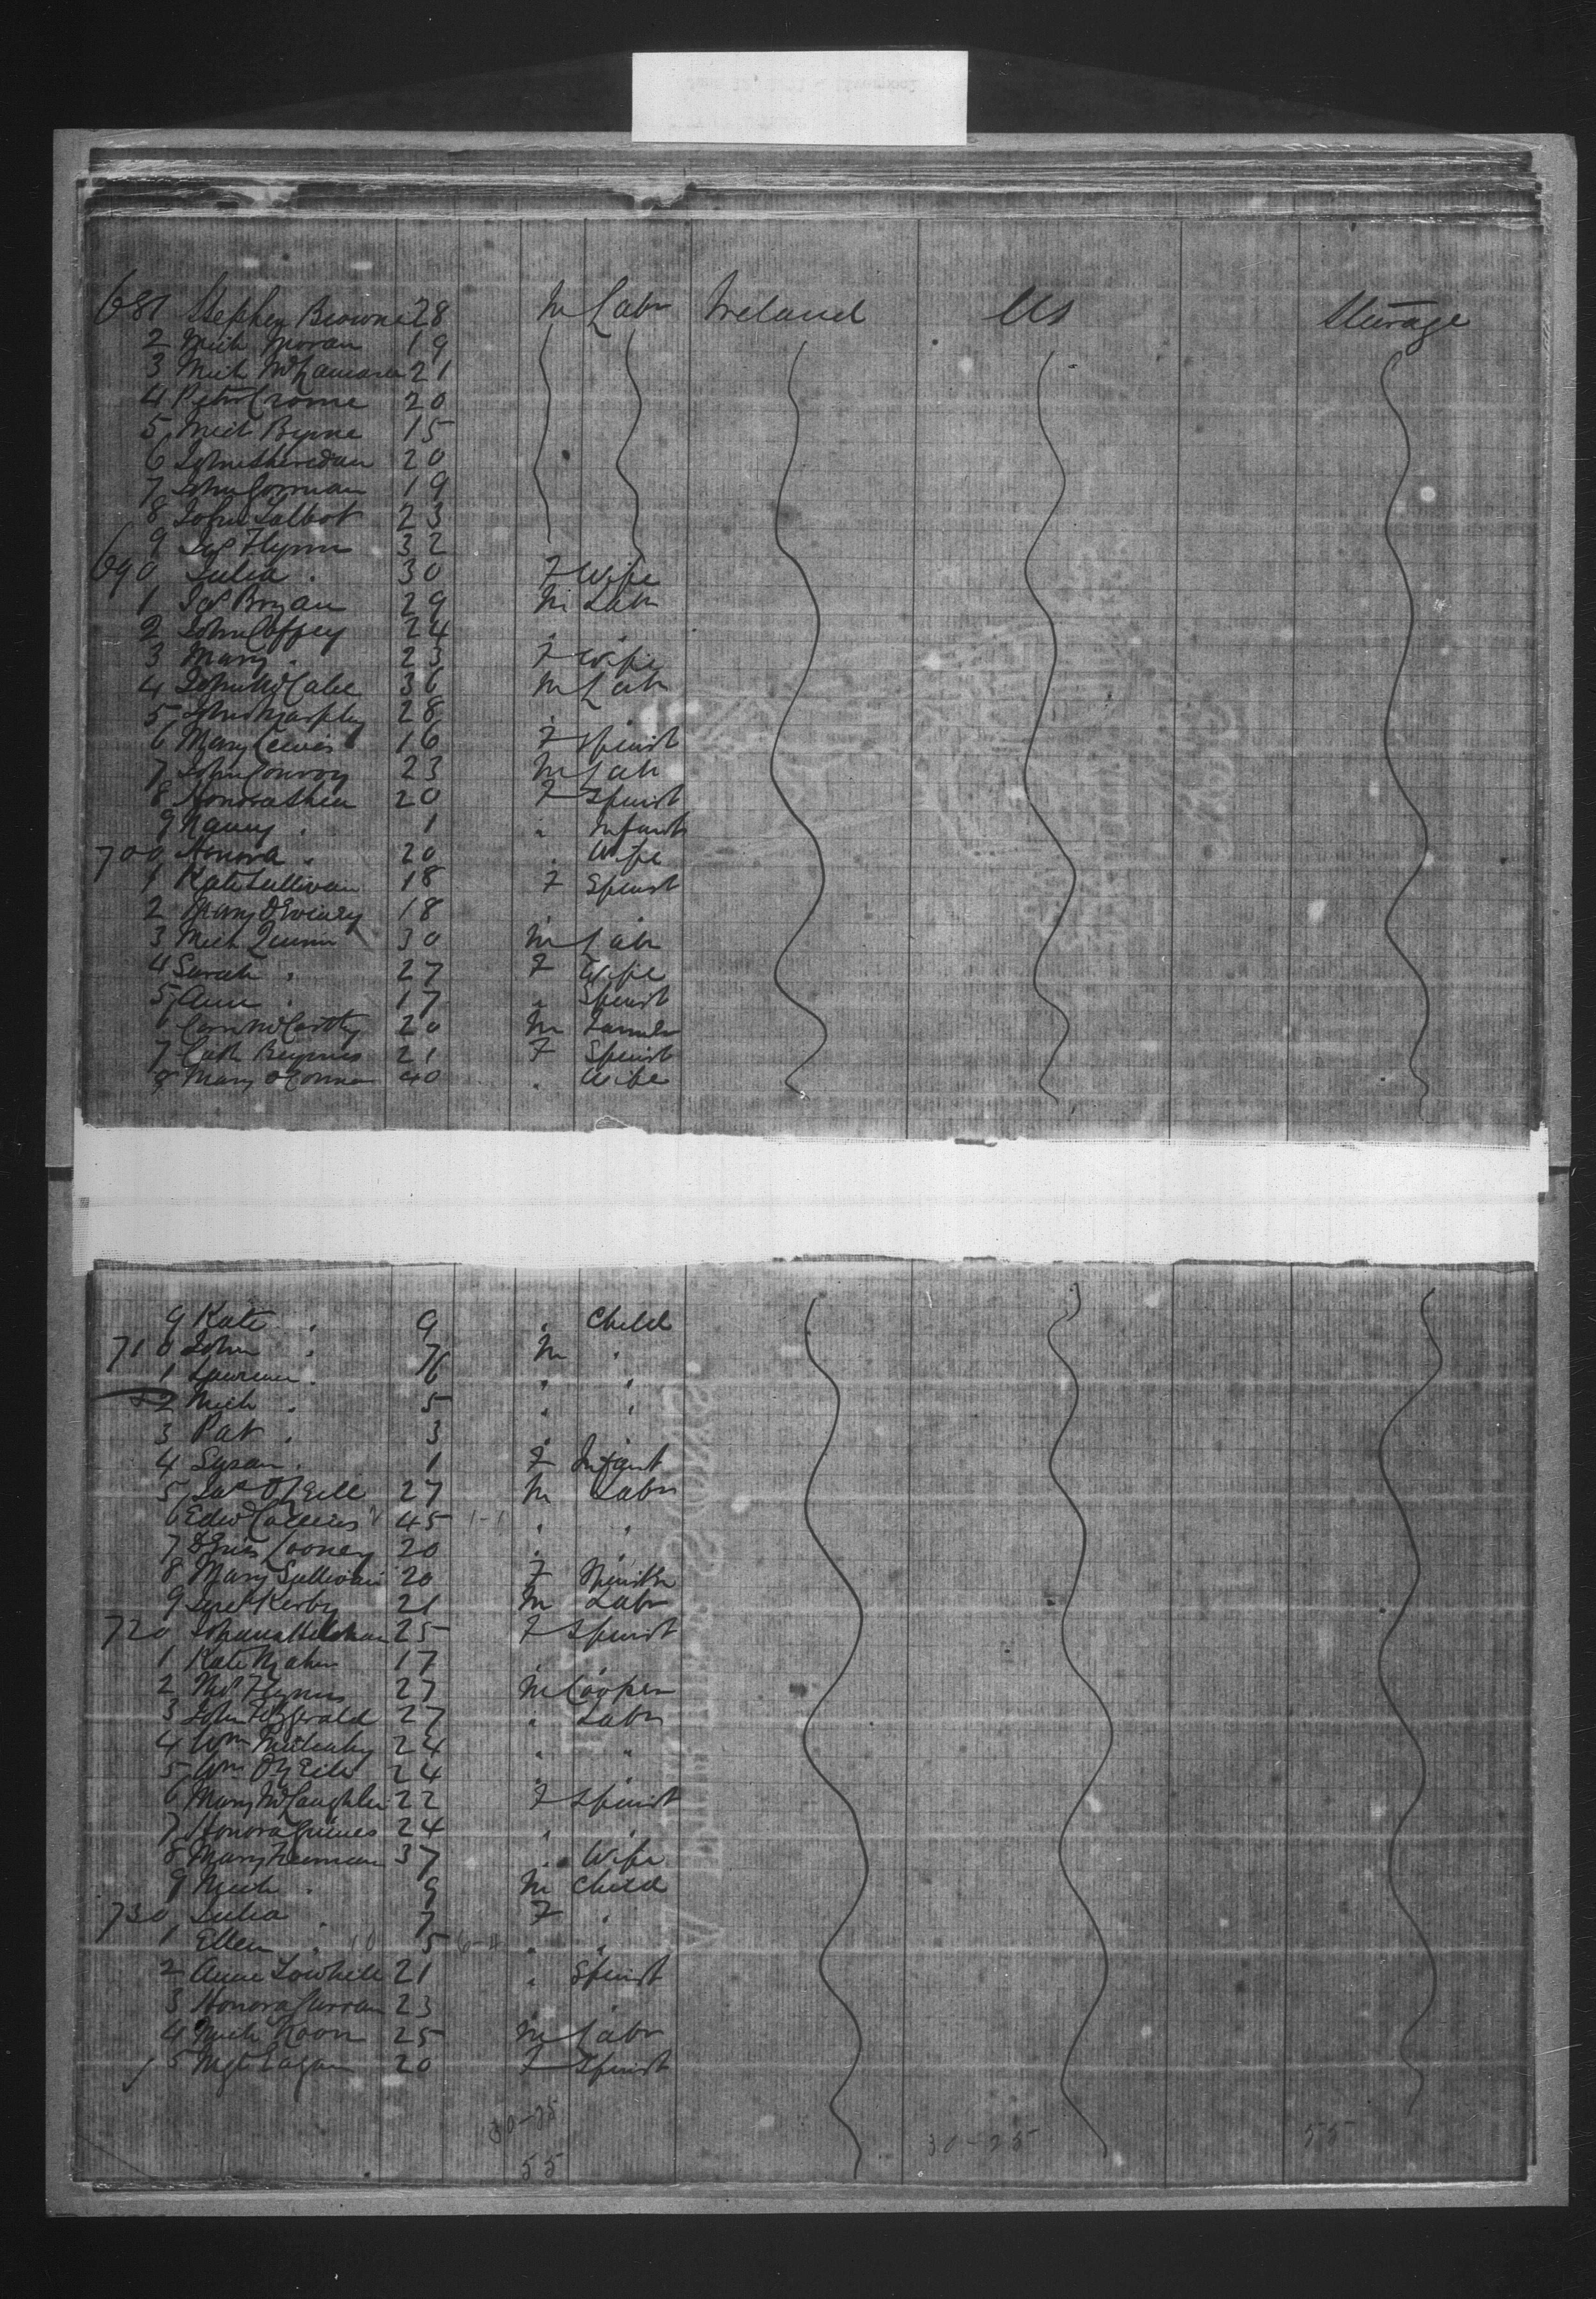 681 Stephen Browne 28 M Labr Ireland US Steerage
2 Mich Moran 19
3 Mich McNamara 21
4 Peter Crome 20
5 Mich Byrne 15
6 John Sheridan 20
7 John Gorman 19
8 John Talbot 23
9 Jas Flynn 32
690 Julia " 30 F Wife
1 Jas Bryan 29 M Labr
2 John Coffey 24 " "
3 Mary " 23 F Wife
4 John McCabe 36 M Labr
5 John Murphy 28 " "
6 Mary Lewis 16 F Spinst
7 John Conroy 23 M Labr
8 Honora Shea 20 F Spinst
9 Nancy " 1 " Infant
700 Honora " 20 " Wife
1 Kate Sullivan 18 F Spinst
2 Mary 18 " "
3 Mich Quinn 30 M Labr
4 Sarah " 27 F Wife
5 Ann " 17 " Spinst
6 McCarthy 20 M
7 Cath 21 F Spinst
8 Mary O'Connor 40 " Wife
9 Kate " 9 " Child
710 John " 7 M "
1 Lawrence " 6 " "
2 Mich " 5 " "
3 Pat " 3 " "
4 Susan " 1 F Infant
5 Jas O'Neill 27 M Labr
6 Edwd Collins 45 1-1 " "
7 Looney 20 " "
8 Mary Sullivan 20 F Spinstr
9 Kerby 21 M Labr
720 Johanna 25 F Spinst
1 Kate Maher 17 " "
2 Flynn 27 M Cooper
3 John Fitzgerald 27 " Labr
4 Wm 24 " "
5 Wm O'Neill 24 " "
6 Mary McLaughlin 22 F Spinst
7 Honora Grimes 24 " "
8 Mary 37 " Wife
9 Mich " 9 M Child
730 Julia " 7 F "
1 Ellen " 10 5 6-4 " "
2 Anne 21 " Spinst
3 Honora Curran 23 " "
4 Mich Koon 25 M Labr
5 Mgt Eagan 20 F Spinst
30-25 30-25 55
55